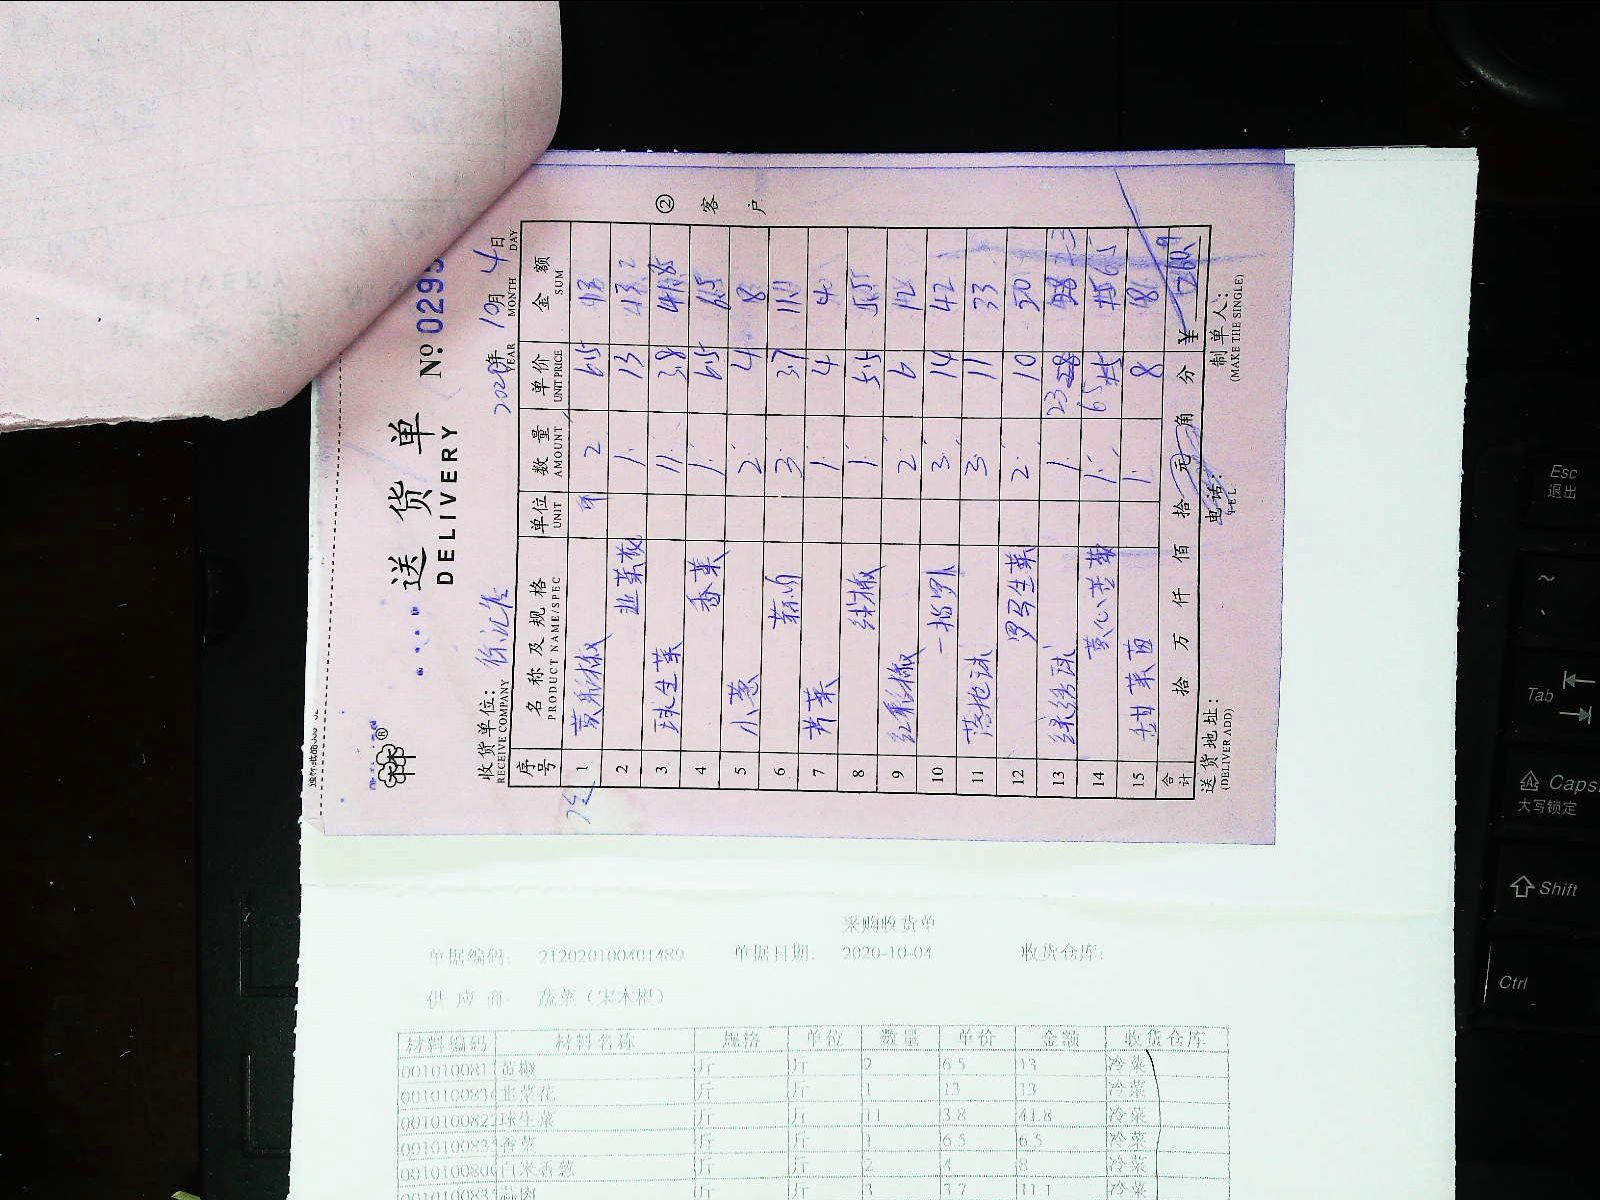 送货单
DELIVERY
№ 0295
收货单位: 徐汇店
RECEIVE COMPANY
2020年 10月 4日
YEAR MONTH DAY
② 客户
序号 名称及规格 单位 数量 单价 金额
PRODUCT NAME/SPEC UNIT AMOUNT UNIT PRICE SUM
1 黄彩椒 斤 2 6.5 13
2 韭菜花 1 13 13
3 球生菜 11 3.8 41.8
4 香菜 1 6.5 6.5
5 小葱 2 4 8
6 蒜肉 3 3.7 11.1
7 芹菜 1 4 4
8 线椒 1 5.5 5.5
9 红彩椒 2 6 12
10 一指罗 3 14 42
11 落地球 3 11 33
12 罗马生菜 2 10 20
13 绿绣球 1 23 23
14 黄心苦菊 1 6.5 6.5
15 甜菜苗 1 8 8
合计 拾 万 仟 佰 拾 元 角 分 ¥
送货地址: 电话: 制单人:
(DELIVER ADD) TEL (MAKE THE SINGLE)
采购收货单
单据编码: 212020100401489 单据日期: 2020-10-04 收货仓库:
供应商: 蔬菜（宋木根）
材料编码 材料名称 规格 单位 数量 单价 金额 收货仓库
001010081 黄椒 斤 斤 2 6.5 13 冷菜
001010083 韭菜花 斤 斤 1 13 13 冷菜
001010082 球生菜 斤 斤 11 3.8 41.8 冷菜
001010083 香菜 斤 斤 1 6.5 6.5 冷菜
001010080 白米香葱 斤 斤 2 4 8 冷菜
001010083 蒜肉 斤 斤 3 3.7 11.1 冷菜
Esc
退出
~
Tab
Caps
大写锁定
Shift
Ctrl